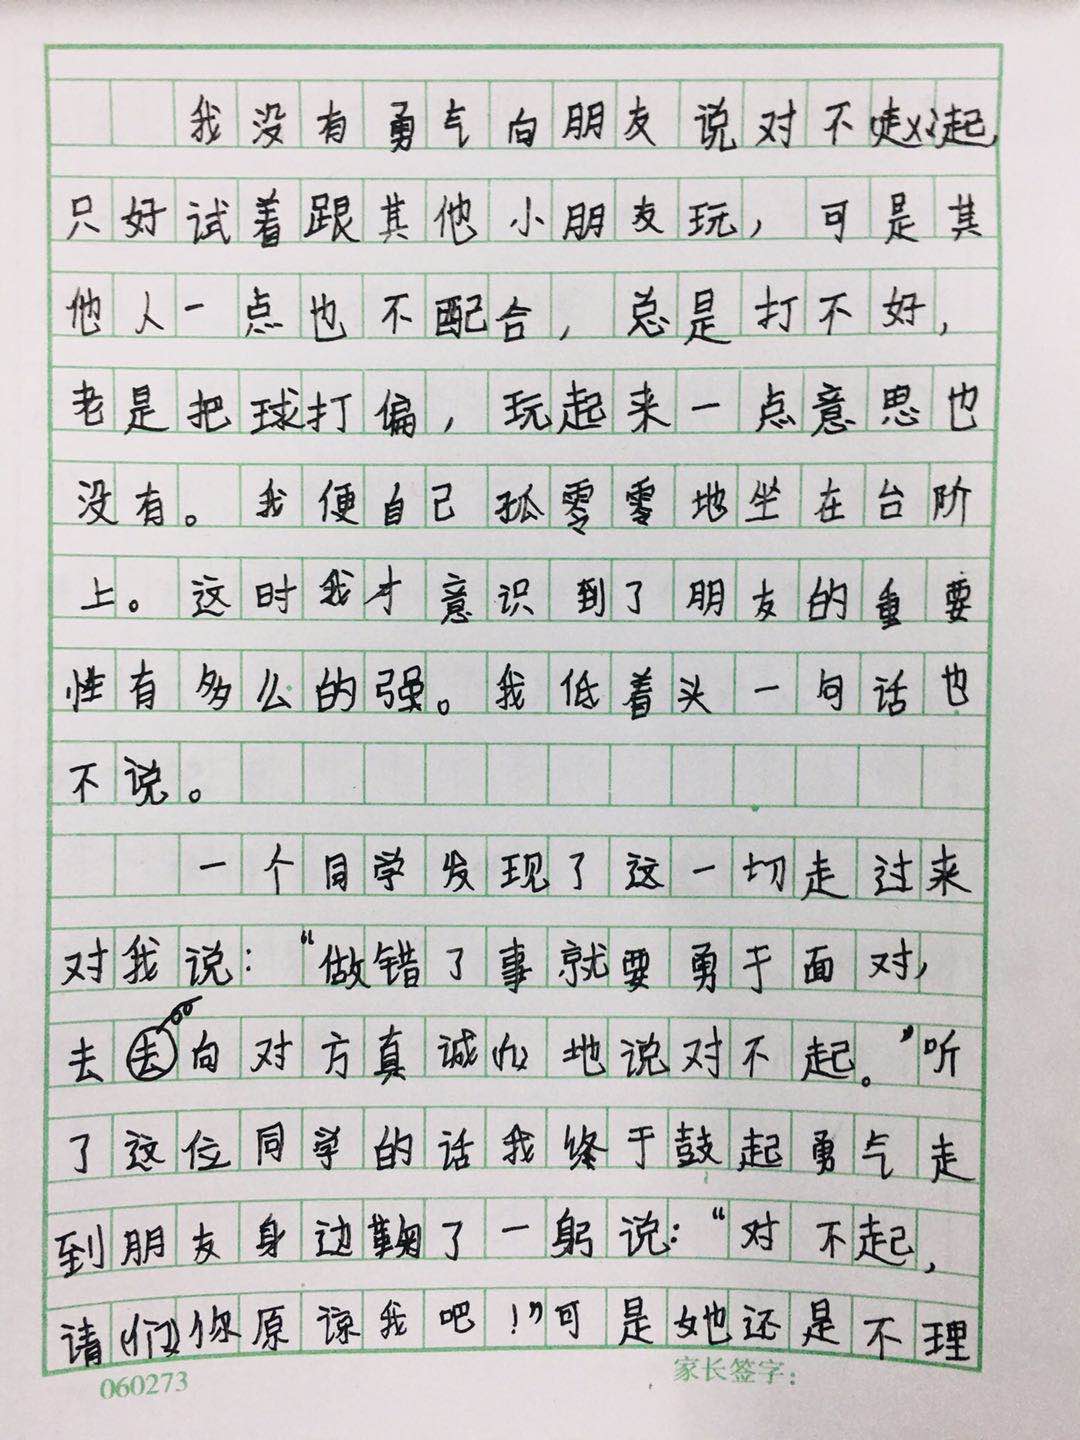 我没有勇气向朋友说对不起，
只好试着跟其他小朋友玩，可是其
他人一点也不配合，总是打不好，
老是把球打偏，玩起来一点意思也
没有。我便自己孤零零地坐在台阶
上。这时我才意识到了朋友的重要
性有多么的强。我低着头一句话也
不说。
一个同学发现了这一切走过来
对我说：“做错了事就要勇于面对，
去向对方真诚心地说对不起。”听
了这位同学的话我终于鼓起勇气走
到朋友身边鞠了一躬说：“对不起，
请你原谅我吧！”可是她还是不理
060273 家长签字：